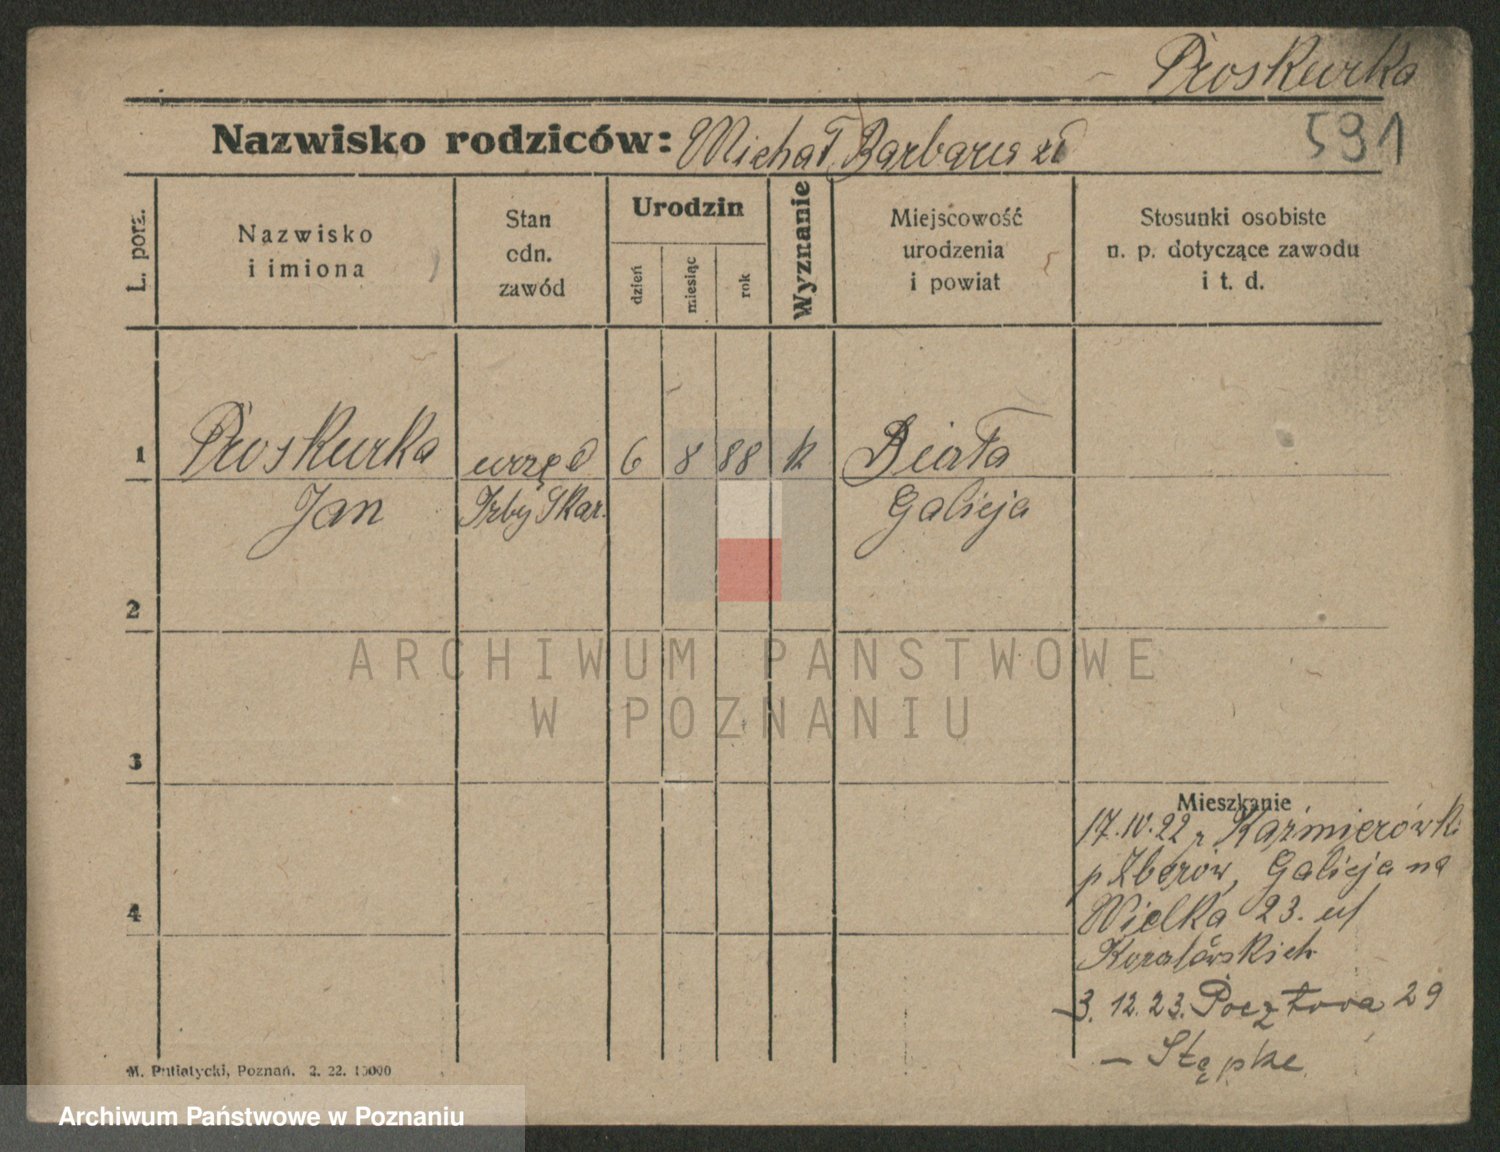 Proskurka
591
Nazwisko rodziców: Michał Barbara
L. porz.
Nazwisko
i imiona
Stan
odn.
zawód
Urodzin
dzień
miesiąc
rok
Wyznanie
Miejscowość
urodzenia
i powiat
Stosunki osobiste
n. p. dotyczące zawodu
i t. d.
1
Proskurka
urzęd
6
8
88
k
Biała
Jan
Izby Skar.
Galicja
2
ARCHIWUM PAŃSTWOWE
W POZNANIU
3
Mieszkanie
17.IV.22 z Kaźmierówki
p Zborów, Galicja na
4
Wielka 23. u/
3. 12. 23. Pocztowa 29
M. Putiatycki, Poznań. 2. 22. 15000
Archiwum Państwowe w Poznaniu